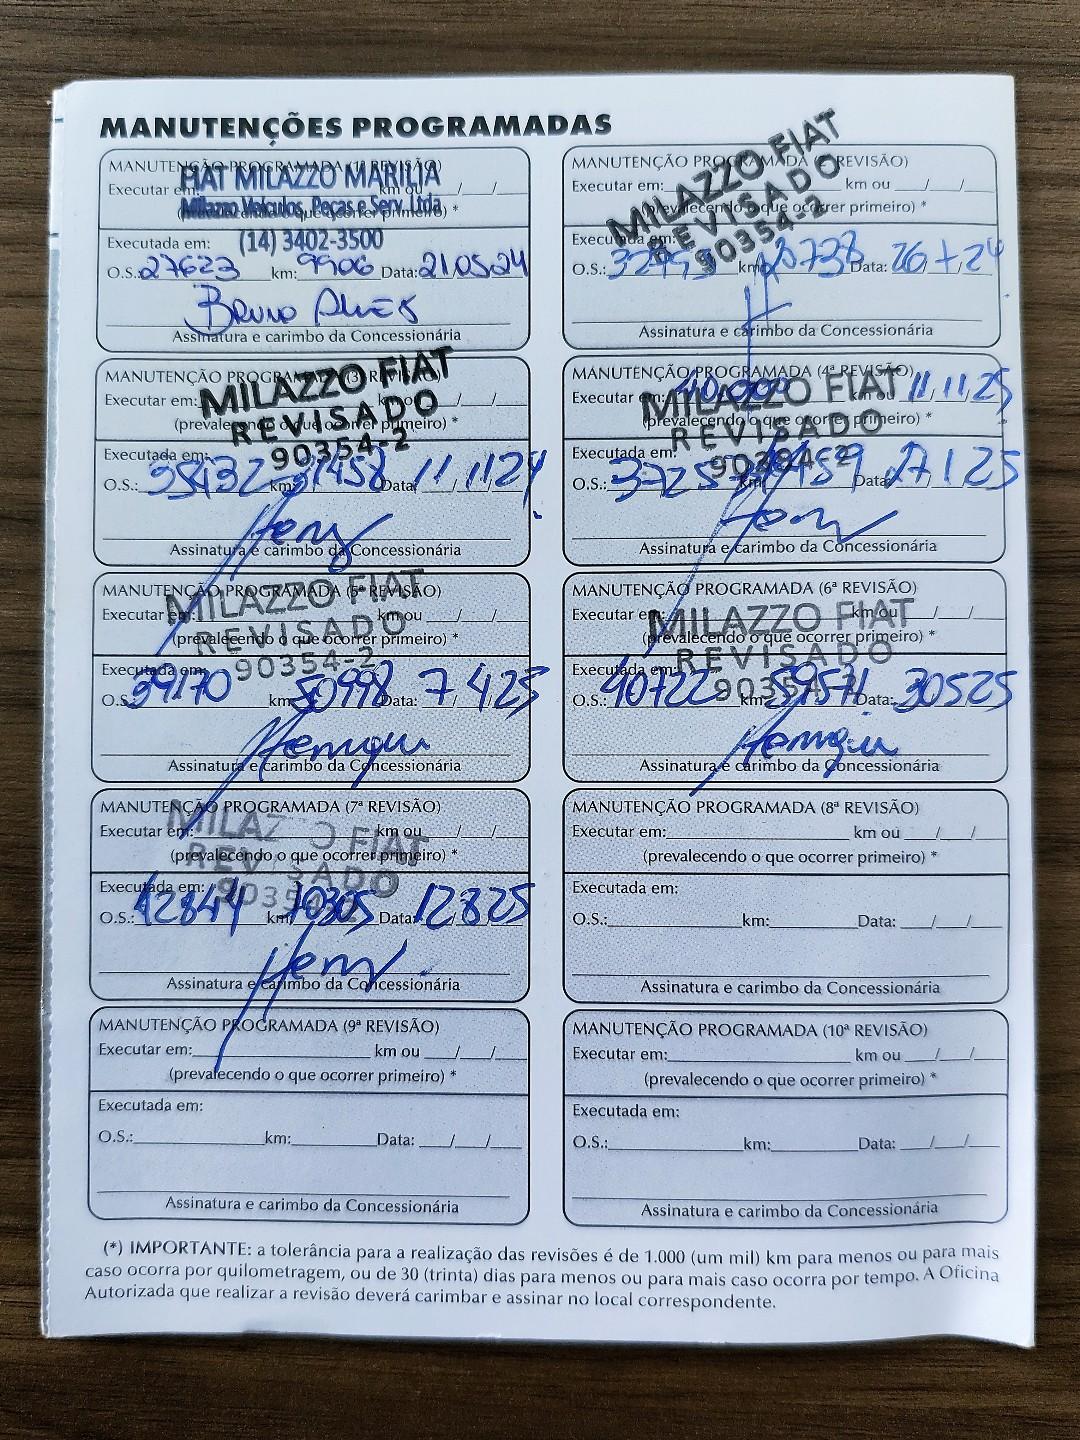 MANUTENÇÕES PROGRAMADAS
MANUTENÇÃO PROGRAMADA (1ª REVISÃO)
FIAT MILAZZO MARILIA
Executar em: km ou __/__/__
Milazzo Veículos, Peças e Serv. Ltda
(prevalecendo o que ocorrer primeiro) *
Executada em: (14) 3402-3500
O.S.: 27623 km: 9906 Data: 21/05/24
Bruno Alves
Assinatura e carimbo da Concessionária
MANUTENÇÃO PROGRAMADA (2ª REVISÃO)
Executar em: km ou __/__/__
(prevalecendo o que ocorrer primeiro) *
MILAZZO FIAT
REVISADO
90354-2
Executada em:
O.S.: km: 20738 Data: 26/7/24
Assinatura e carimbo da Concessionária
MANUTENÇÃO PROGRAMADA (3ª REVISÃO)
MILAZZO FIAT
Executar em: km ou __/__/__
(prevalecendo o que ocorrer primeiro) *
REVISADO
90354-2
Executada em:
O.S.: 35432 km: 31458 Data: 11/11/24
Assinatura e carimbo da Concessionária
MANUTENÇÃO PROGRAMADA (4ª REVISÃO)
MILAZZO FIAT
Executar em: 40.000 km ou 11/11/25
(prevalecendo o que ocorrer primeiro) *
REVISADO
90354-2
Executada em:
O.S.: km: Data: 27/1/25
Assinatura e carimbo da Concessionária
MANUTENÇÃO PROGRAMADA (5ª REVISÃO)
MILAZZO FIAT
Executar em: km ou __/__/__
(prevalecendo o que ocorrer primeiro) *
REVISADO
90354-2
Executada em:
O.S.: 39170 km: 50998 Data: 7/4/25
Assinatura e carimbo da Concessionária
MANUTENÇÃO PROGRAMADA (6ª REVISÃO)
MILAZZO FIAT
Executar em: km ou __/__/__
(prevalecendo o que ocorrer primeiro) *
REVISADO
90354-2
Executada em:
O.S.: 40722 km: 59571 Data: 30/5/25
Assinatura e carimbo da Concessionária
MANUTENÇÃO PROGRAMADA (7ª REVISÃO)
MILAZZO FIAT
Executar em: km ou __/__/__
(prevalecendo o que ocorrer primeiro) *
REVISADO
90354-2
Executada em:
O.S.: 42844 km: 70305 Data: 12/8/25
Assinatura e carimbo da Concessionária
MANUTENÇÃO PROGRAMADA (8ª REVISÃO)
Executar em: km ou __/__/__
(prevalecendo o que ocorrer primeiro) *
Executada em:
O.S.: km: Data: __/__/__
Assinatura e carimbo da Concessionária
MANUTENÇÃO PROGRAMADA (9ª REVISÃO)
Executar em: km ou __/__/__
(prevalecendo o que ocorrer primeiro) *
Executada em:
O.S.: km: Data: __/__/__
Assinatura e carimbo da Concessionária
MANUTENÇÃO PROGRAMADA (10ª REVISÃO)
Executar em: km ou __/__/__
(prevalecendo o que ocorrer primeiro) *
Executada em:
O.S.: km: Data: __/__/__
Assinatura e carimbo da Concessionária
(*) IMPORTANTE: a tolerância para a realização das revisões é de 1.000 (um mil) km para menos ou para mais
caso ocorra por quilometragem, ou de 30 (trinta) dias para menos ou para mais caso ocorra por tempo. A Oficina
Autorizada que realizar a revisão deverá carimbar e assinar no local correspondente.